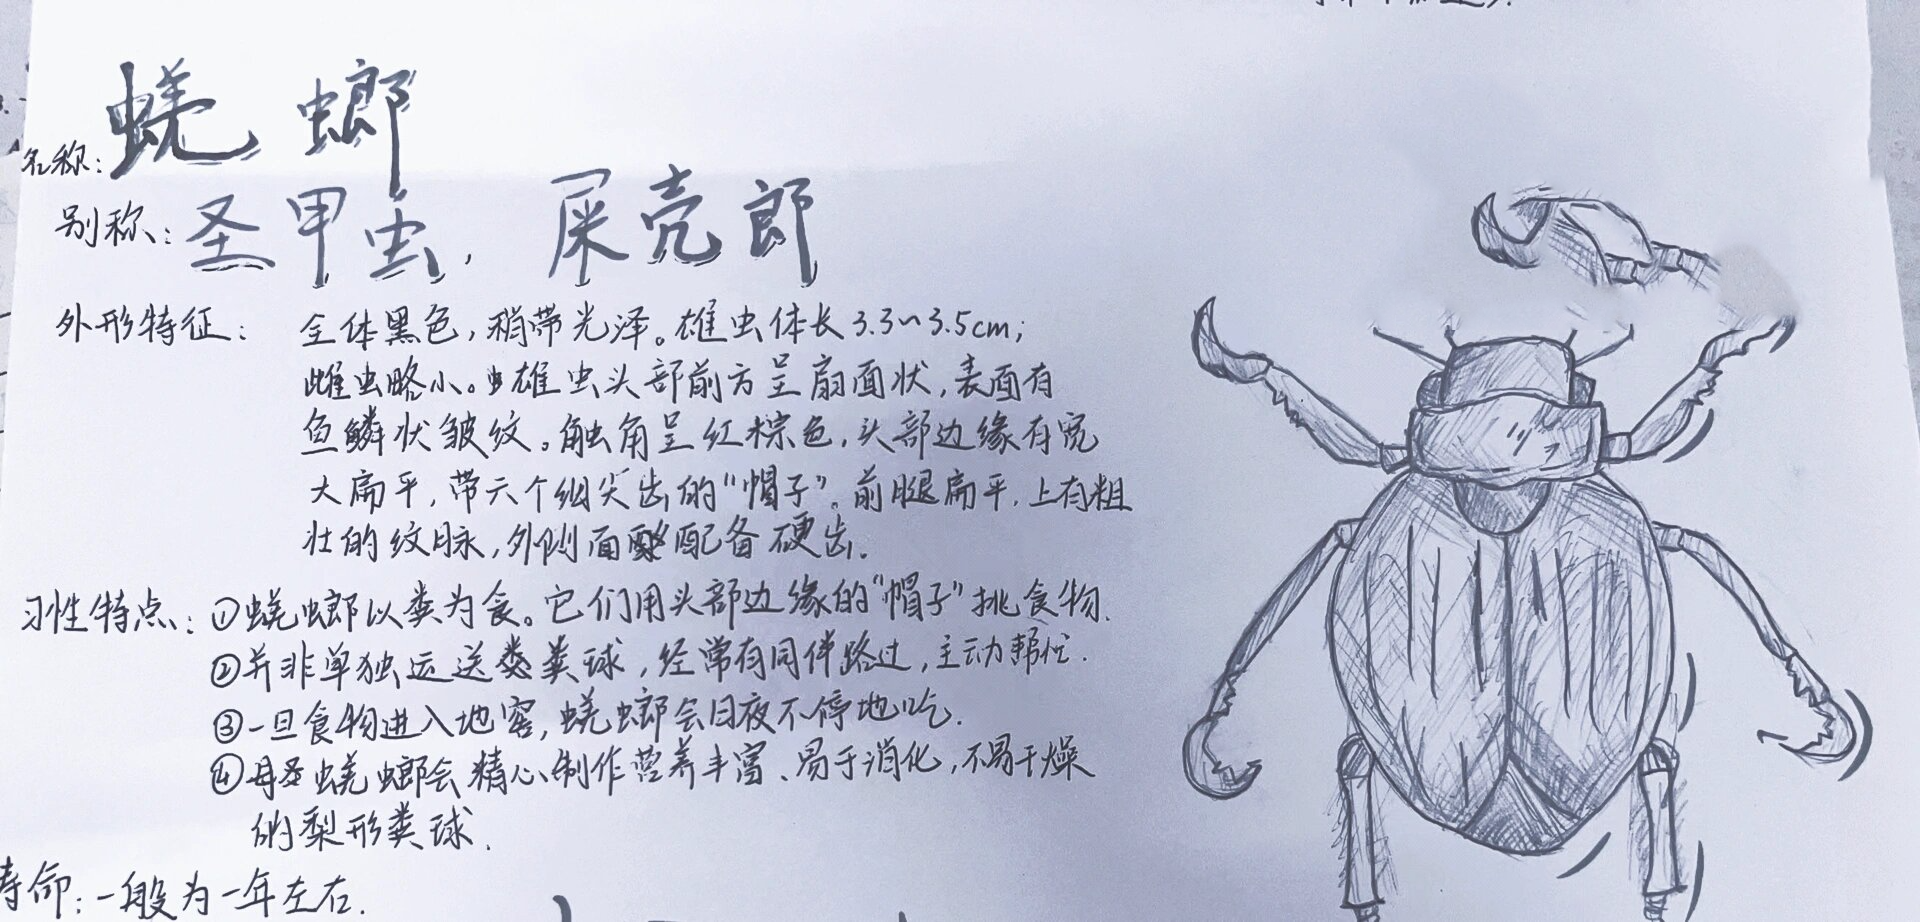 名称:蜣螂
别称:圣甲虫,屎壳郎
外形特征:全体黑色,稍带光泽。雄虫体长3.3~3.5cm;
雌虫略小。雄虫头部前方呈扇面状,表面有
鱼鳞状皱纹。触角呈红棕色,头部边缘有宽
大扁平,带六个细尖齿的“帽子”。前腿扁平,上有粗
壮的纹脉,外侧面配备硬齿.
习性特点:①蜣螂以粪为食。它们用头部边缘的“帽子”挑食物.
②并非单独运送粪球,经常有同伴路过,主动帮忙.
③一旦食物进入地窖,蜣螂会日夜不停地吃.
④母圣蜣螂会精心制作营养丰富、易于消化,不易干燥
的梨形粪球.
寿命:一般为一年左右.